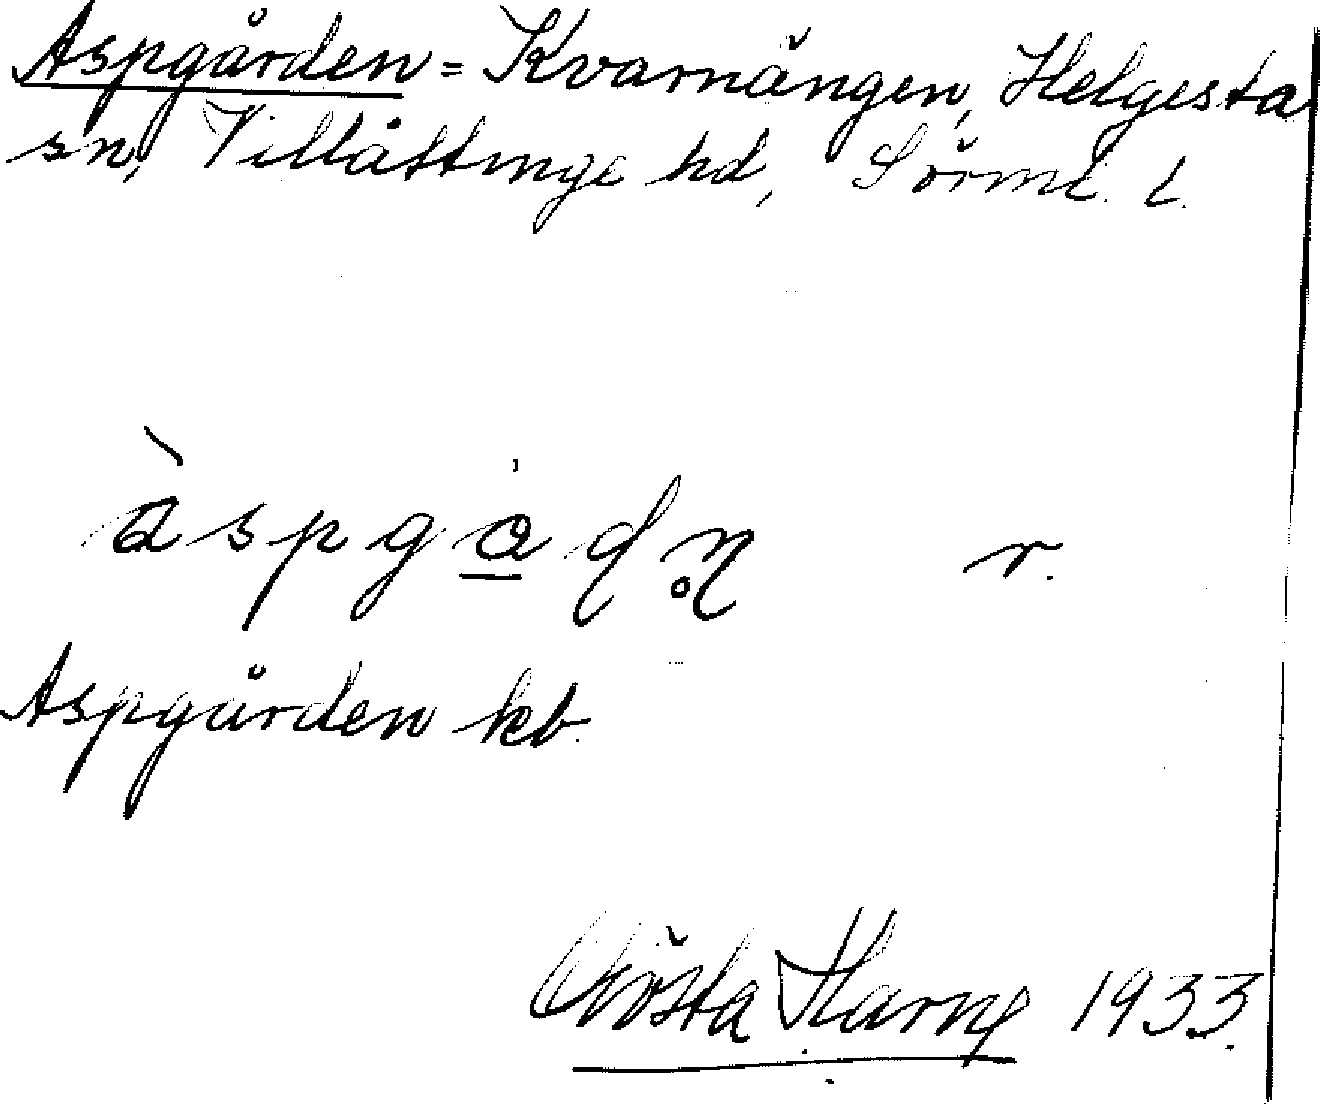 Aspgården = Kvarnängen, Helgesta
sn, Villåttinge hd, Sörml. l.
àspgȧ̱ɖɳ̥ r.
Aspgården kb.
Gösta 1933.